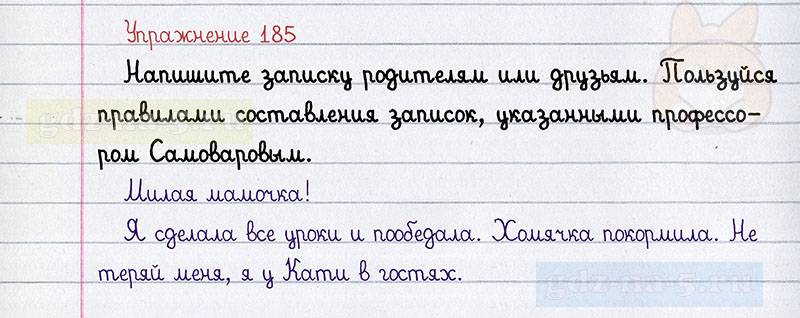 Упражнение 185
Напишите записку родителям или друзьям. Пользуйся
правилами составления записок, указанными профессо-
ром Самоваровым.
Милая мамочка!
Я сделала все уроки и пообедала. Хомячка покормила. Не
теряй меня, я у Кати в гостях.
gdz-na-5.ru
gdz-na-5.ru